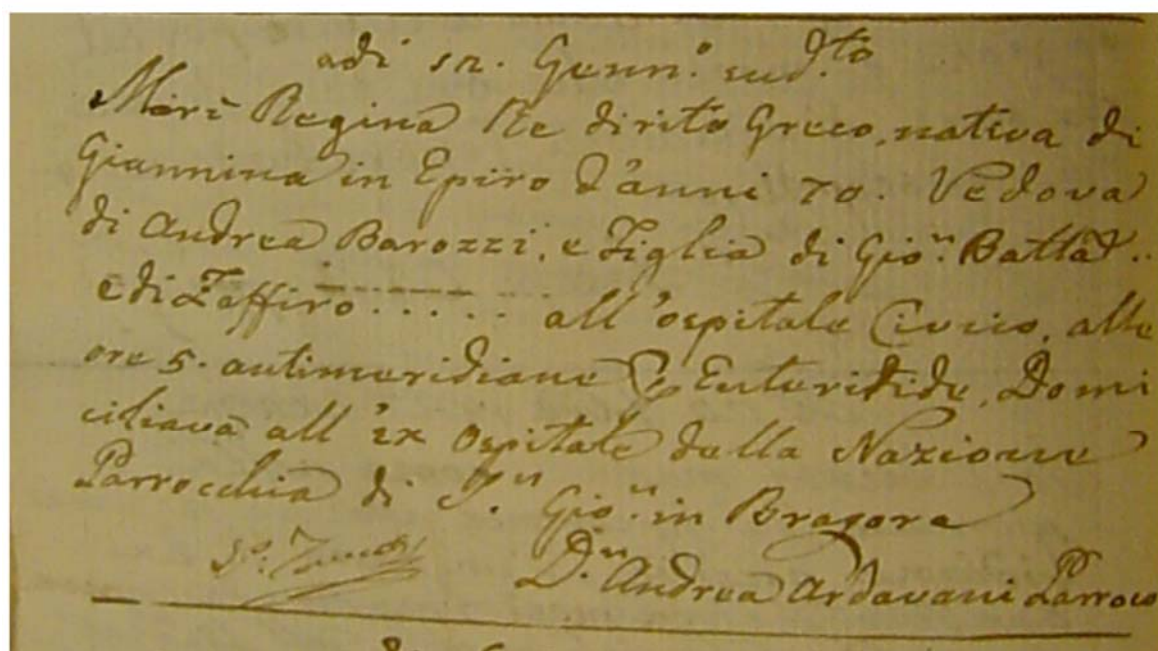 adi 12. Genn.º sud.to
Morì Regina Re di rito Greco, nativa di
Giannina in Epiro d'anni 70. Vedova
di Andrea Barozzi, e Figlia di Gio.n Batta ..
e di Zaffiro ...... all'ospitale Civico, alle
ore 5. antimeridiane Enteritide, Domi
ciliava all'ex Ospitale della Nazione
Parrocchia di S.n Gio.n in Bragora
D.n Andrea Ardavani Parroco